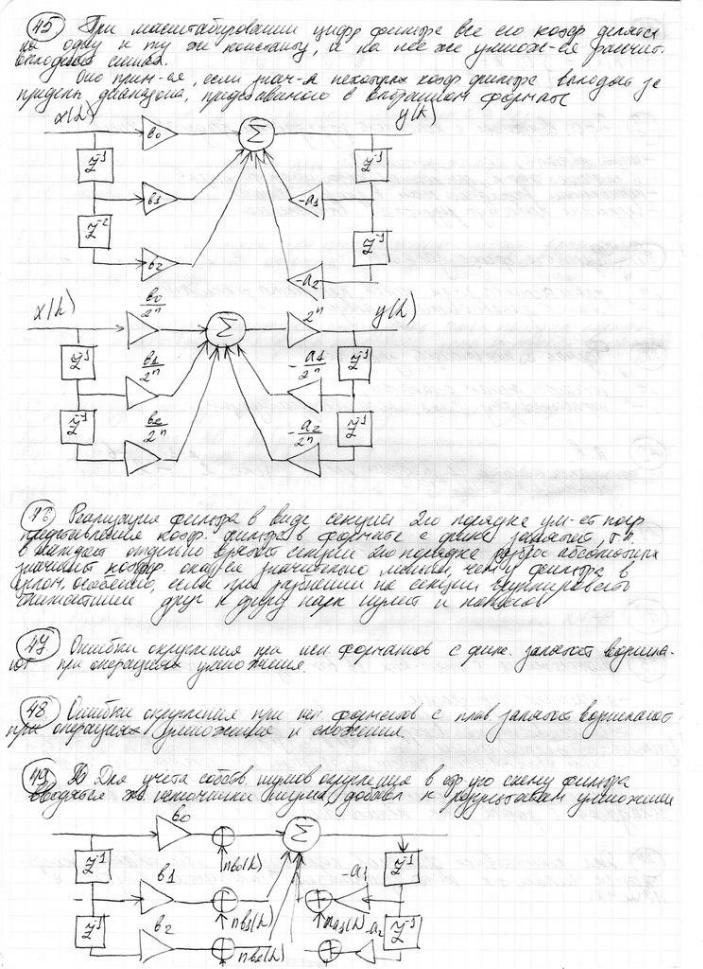 45 При масштабировании цифр фильтра все его коэф делятся
на одну и ту же константу, а на нее же умнож-ся
Оно прим-ся, если знач-я некоторых коэф фильтра выходят за
пределы диапазона, в формате
x(k) b₀ Σ y(k)
z⁻¹ z⁻¹
b₁ -a₁
z⁻² z⁻¹
b₂ -a₂
x(k) b₀/2ⁿ Σ 2ⁿ y(k)
z⁻¹ b₁/2ⁿ -a₁/2ⁿ z⁻¹
z⁻¹ b₂/2ⁿ -a₂/2ⁿ z⁻¹
46 Реализация фильтра в виде секций 2го порядка ум-ет погр
представления коэф. фильтра в формате с фикс запятой, т.к.
в каждой отдельно взятой секции 2го порядка абсолютных
значений коэф значительно меньше, чем у фильтра в
особенно, если при разбиении на секции
друг к другу пары нулей и полюсов
47 Ошибки округления при исп форматов с фикс. запятой возника-
ют при операциях умножения.
48 Ошибки округления при исп форматов с плав. запятой возникают
при операциях умножения и сложения.
49 Для учета собств. шумов округления в стр-ую схему фильтра
вводятся источники шума, к результатам умножений
b₀ Σ
z⁻¹ nb₀(k) z⁻¹
b₁ -a₁
z⁻¹ nb₁(k) na₁(k) -a₂ z⁻¹
b₂ nb₂(k)